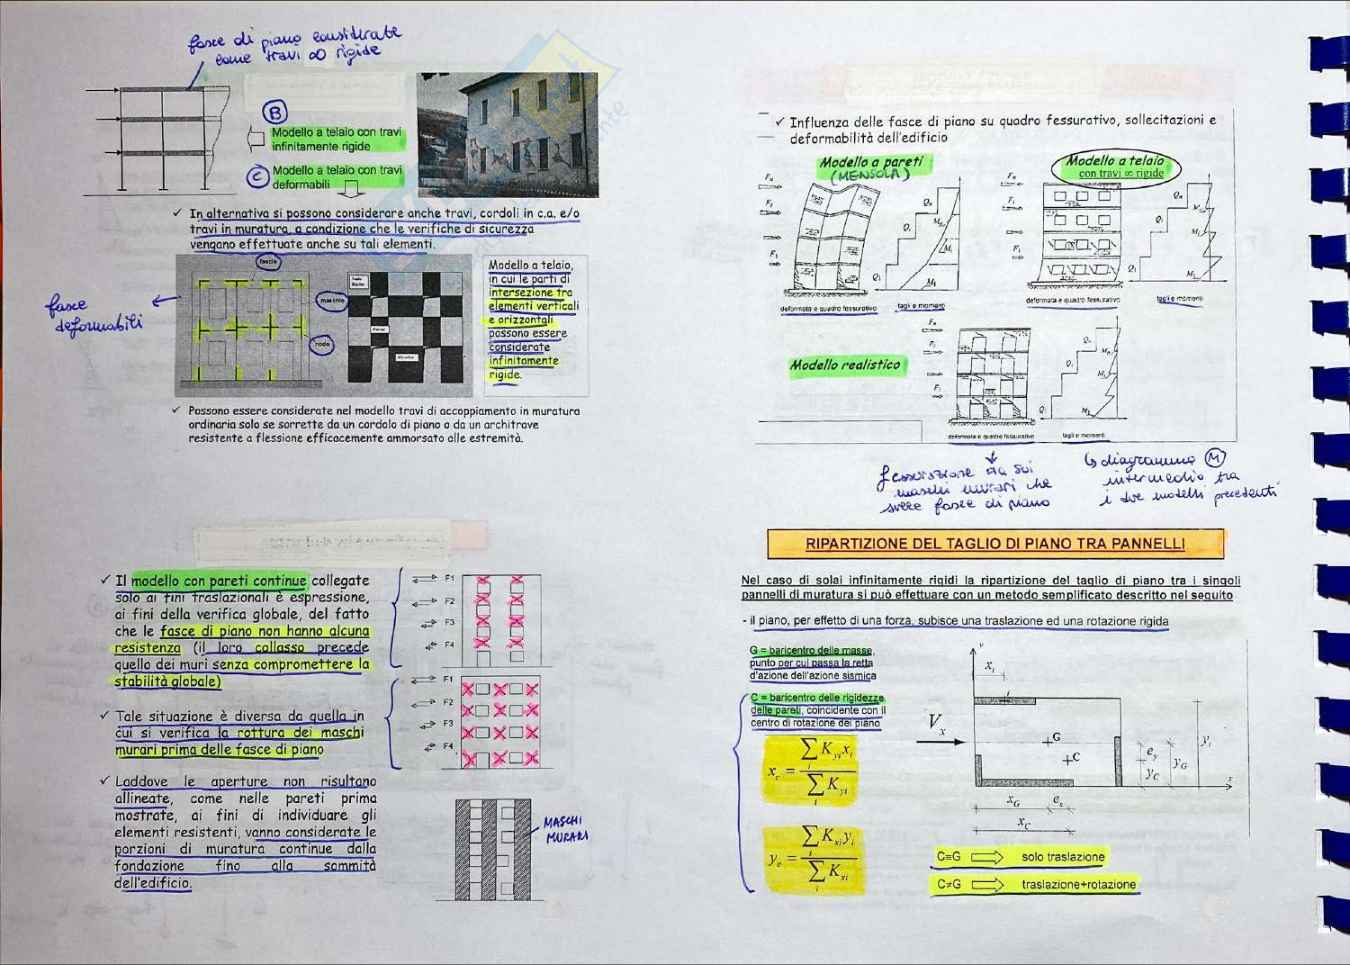 fasce di piano considerate
come travi ∞ rigide
B
Modello a telaio con travi
infinitamente rigide
C
Modello a telaio con travi
deformabili
✓ In alternativa si possono considerare anche travi, cordoli in c.a. e/o
travi in muratura, a condizione che le verifiche di sicurezza
vengano effettuate anche su tali elementi.
fasce
deformabili
fascia
maschio
nodo
Modello a telaio,
in cui le parti di
intersezione tra
elementi verticali
e orizzontali
possono essere
considerate
infinitamente
rigide.
✓ Possono essere considerate nel modello travi di accoppiamento in muratura
ordinaria solo se sorrette da un cordolo di piano o da un architrave
resistente a flessione efficacemente ammorsato alle estremità.
✓ Influenza delle fasce di piano su quadro fessurativo, sollecitazioni e
deformabilità dell'edificio
Modello a pareti
(MENSOLA)
Modello a telaio
con travi ∞ rigide
deformata e quadro fessurativo
tagli e momenti
deformata e quadro fessurativo
tagli e momenti
Modello realistico
deformata e quadro fessurativo
tagli e momenti
fessurazione sia sui
maschi murari che
sulle fasce di piano
↳ diagramma M
intermedio tra
i due modelli precedenti
✓ Il modello con pareti continue collegate
solo ai fini traslazionali è espressione,
ai fini della verifica globale, del fatto
che le fasce di piano non hanno alcuna
resistenza (il loro collasso precede
quello dei muri senza compromettere la
stabilità globale)
F1
F2
F3
F4
✓ Tale situazione è diversa da quella in
cui si verifica la rottura dei maschi
murari prima delle fasce di piano
F1
F2
F3
F4
✓ Laddove le aperture non risultano
allineate, come nelle pareti prima
mostrate, ai fini di individuare gli
elementi resistenti, vanno considerate le
porzioni di muratura continue dalla
fondazione fino alla sommità
dell'edificio.
MASCHI
MURARI
RIPARTIZIONE DEL TAGLIO DI PIANO TRA PANNELLI
Nel caso di solai infinitamente rigidi la ripartizione del taglio di piano tra i singoli
pannelli di muratura si può effettuare con un metodo semplificato descritto nel seguito
- il piano, per effetto di una forza, subisce una traslazione ed una rotazione rigida
G = baricentro delle masse,
punto per cui passa la retta
d'azione dell'azione sismica
C = baricentro delle rigidezze
delle pareti, coincidente con il
centro di rotazione del piano
x_c = ∑_i K_yi x_i / ∑_i K_yi
y_c = ∑_i K_xi y_i / ∑_i K_xi
y
x_i
V_x
G
C
e_y
y_C
y_G
y_i
x
x_G
e_x
x_C
C≡G ⇒ solo traslazione
C≠G ⇒ traslazione+rotazione